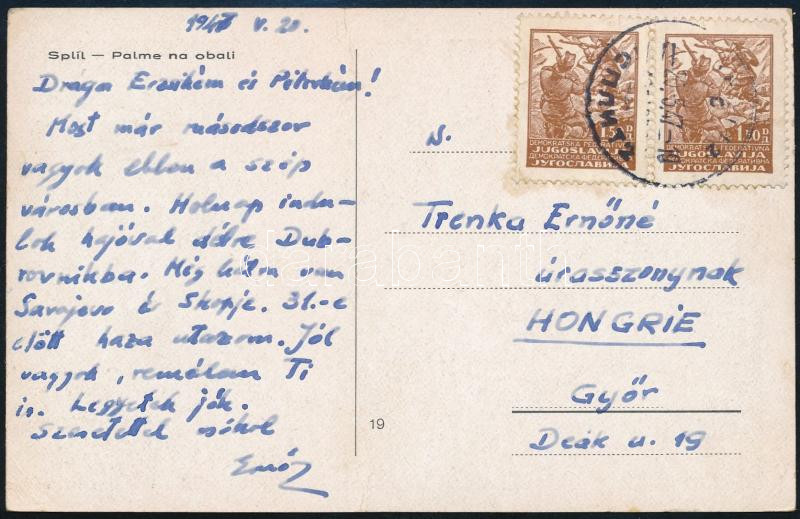 V. 20.
Split — Palme na obali
Drága Erzsikém és Péterkém!
Most már másodszor
vagyok ebben a szép
városban. Holnap indu-
lok hajóval délre Dub-
rovnikba. Még hátra van
Sarajevo és Skopje. 31.-e
előtt haza utazom. Jól
vagyok, remélem Ti
is. Legyetek jók.
Szeretettel csókol
Ernő
19
DEMOKRATSKA FEDERATIVNA
JUGOSLAVIJA
ДЕМОКРАТСКА ФЕДЕРАТИВНА
ЈУГОСЛАВИЈА
DEMOKRATSKA FEDERATIVNA
JUGOSLAVIJA
ДЕМОКРАТСКА ФЕДЕРАТИВНА
ЈУГОСЛАВИЈА
СПЛИТ 2
Trenka Ernőné
úrasszonynak
HONGRIE
Győr
Deák u. 19
darabanth